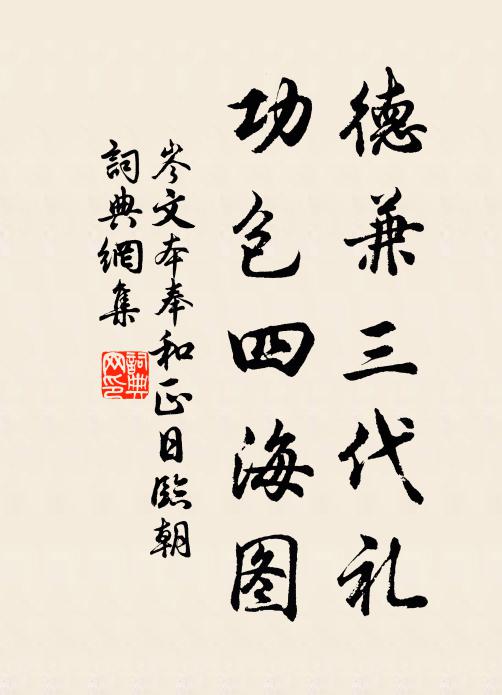 德兼三代礼
功包四海图
岑文本奉和正日臨朝
詞典網集
詞典网印